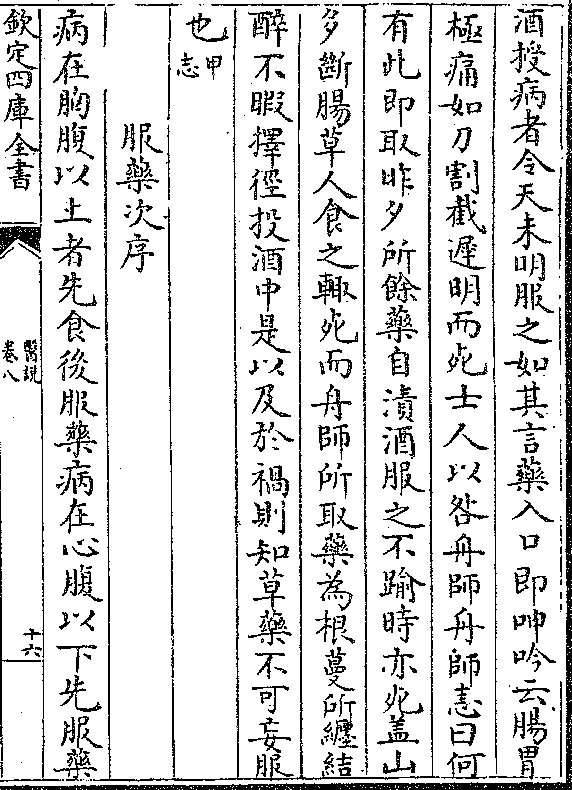 酒授病者令天未明服之如其言藥入口即呻吟云腸胃
極痛如刀割截遲明而死士人以咎舟師舟師恚曰何
有此即取昨夕所餘藥自漬酒服之不踰時亦死盖山
多斷腸草人食之輙死而舟師所取藥為根蔓所纏結
醉不暇擇徑投酒中是以及於禍則知草藥不可妄服
也甲志
服藥次序
病在胸腹以上者先食後服藥病在心腹以下先服藥
欽定四庫全書
醫説
卷八
十六